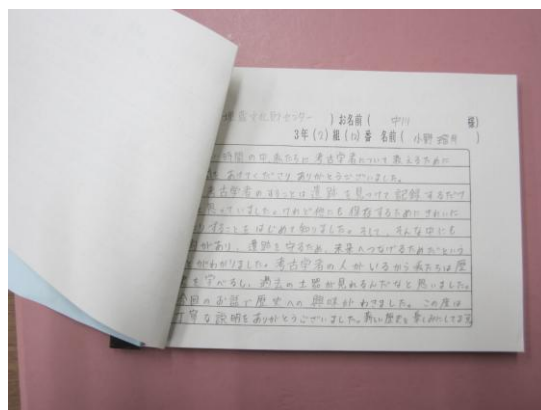 埋蔵文化財センター ) お名前 ( 中川 様)
3年 (2) 組 (12) 番 名前 ( 小野 )
時間の中私たちに考古学者について教えるために
あけてくださりありがとうございました。
考古学者のすることは遺跡を見つけて記録するだけ
思っていました。けれど他にも保存するためにきれいに
することをはじめて知りました。そして、そんな中にも
があり、遺跡を守るため、未来へつなげるためだという
がわかりました。考古学者の人がいるから私たちは歴
を学べるし、過去の土器が見れるんだなと思いました。
今回のお話で歴史への興味がわきました。この度は
丁寧な説明をありがとうございました。新しい歴史を楽しみにしてます